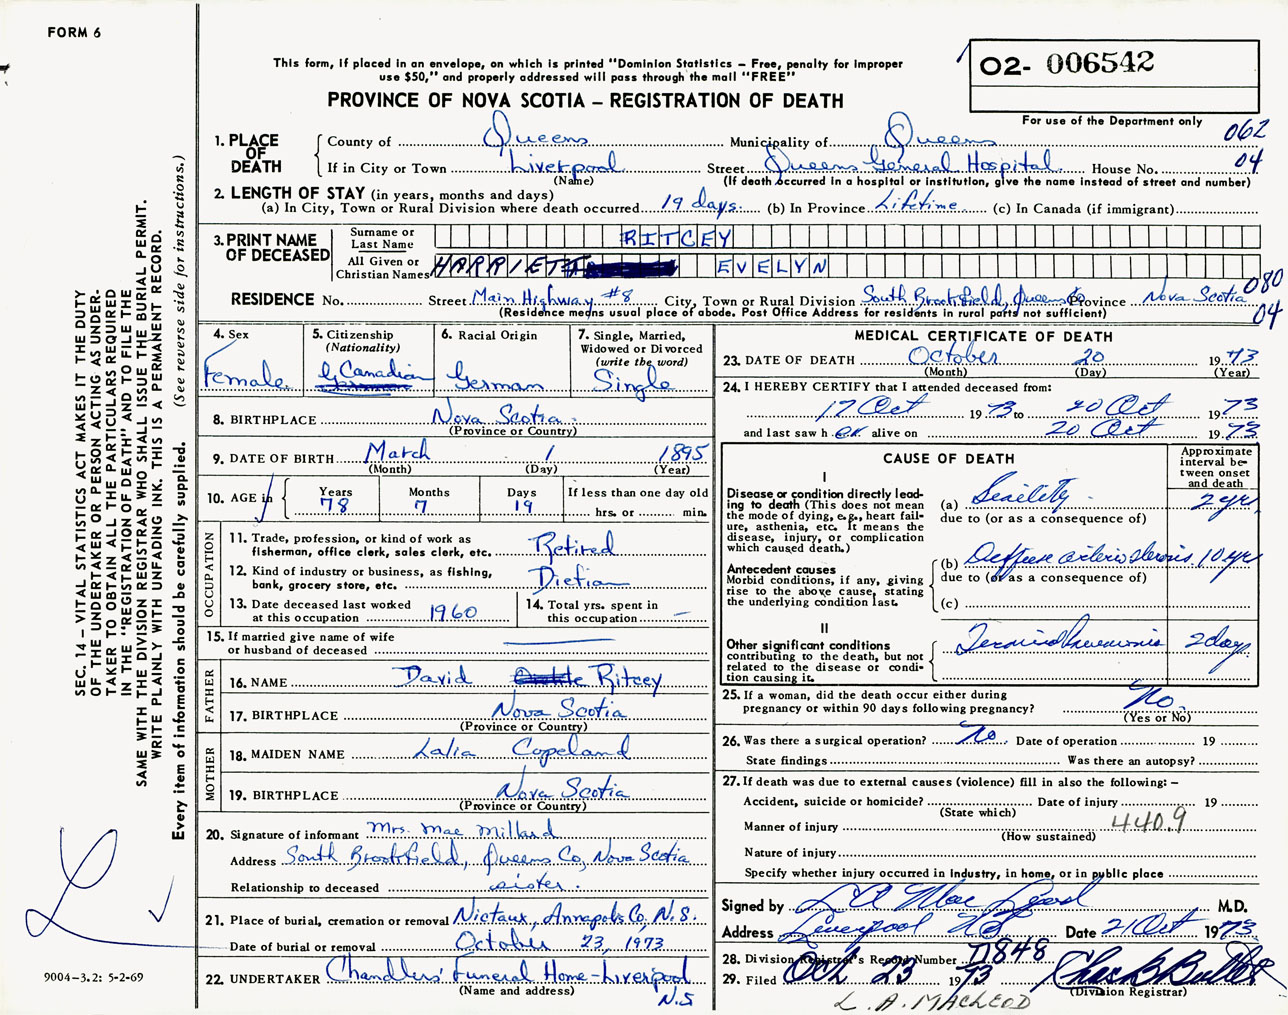 FORM 6
This form, if placed in an envelope, on which is printed "Dominion Statistics – Free, penalty for improper
use $50," and properly addressed will pass through the mail "FREE"
O2- 006542
PROVINCE OF NOVA SCOTIA – REGISTRATION OF DEATH
For use of the Department only
062
04
1. PLACE OF DEATH
County of Queens Municipality of Queens
If in City or Town Liverpool Street Queens General Hospital House No.
(Name) (If death occurred in a hospital or institution, give the name instead of street and number)
2. LENGTH OF STAY (in years, months and days)
(a) In City, Town or Rural Division where death occurred 19 days. (b) In Province Lifetime (c) In Canada (if immigrant)
3. PRINT NAME OF DECEASED
Surname or Last Name RITCEY
All Given or Christian Names HARRIET EVELYN
080
04
RESIDENCE No. Street Main Highway #8 City, Town or Rural Division South Brookfield, Queens Co Province Nova Scotia
(Residence means usual place of abode. Post Office Address for residents in rural parts not sufficient)
4. Sex
Female
5. Citizenship
(Nationality)
Canadian
6. Racial Origin
German
7. Single, Married,
Widowed or Divorced
(write the word)
Single
8. BIRTHPLACE Nova Scotia
(Province or Country)
9. DATE OF BIRTH March 1 1895
(Month) (Day) (Year)
10. AGE in
Years Months Days If less than one day old
78 7 19 hrs. or min.
OCCUPATION
11. Trade, profession, or kind of work as
fisherman, office clerk, sales clerk, etc. Retired
12. Kind of industry or business, as fishing,
bank, grocery store, etc. Dietian
13. Date deceased last worked
at this occupation 1960
14. Total yrs. spent in
this occupation –
15. If married give name of wife
or husband of deceased
FATHER
16. NAME David Ritcey
17. BIRTHPLACE Nova Scotia
(Province or Country)
MOTHER
18. MAIDEN NAME Lalia Copeland
19. BIRTHPLACE Nova Scotia
(Province or Country)
20. Signature of informant Mrs. Mae Millard
Address South Brookfield, Queens Co, Nova Scotia
Relationship to deceased sister.
21. Place of burial, cremation or removal Nictaux, Annapolis Co, N.S.
Date of burial or removal October 23, 1973
22. UNDERTAKER Chandlers' Funeral Home - Liverpool
(Name and address) N.S
MEDICAL CERTIFICATE OF DEATH
23. DATE OF DEATH October 20 1973
(Month) (Day) (Year)
24. I HEREBY CERTIFY that I attended deceased from:
17 Oct 1973 to 20 Oct 1973
and last saw h er alive on 20 Oct 1973
CAUSE OF DEATH
Approximate interval between onset and death
I
Disease or condition directly leading to death (This does not mean the mode of dying, e.g., heart failure, asthenia, etc. It means the disease, injury, or complication which caused death.)
(a) Senility 2 yrs
due to (or as a consequence of)
Antecedent causes
Morbid conditions, if any, giving
rise to the above cause, stating
the underlying condition last.
(b) Diffuse arteriosclerosis 10 yrs
due to (or as a consequence of)
(c)
II
Other significant conditions
contributing to the death, but not
related to the disease or condition causing it.
Terminal pneumonia 2 days
25. If a woman, did the death occur either during
pregnancy or within 90 days following pregnancy? No.
(Yes or No)
26. Was there a surgical operation? No. Date of operation 19
State findings Was there an autopsy?
27. If death was due to external causes (violence) fill in also the following: –
Accident, suicide or homicide? Date of injury 19
(State which)
Manner of injury 440.9
(How sustained)
Nature of injury
Specify whether injury occurred in industry, in home, or in public place
Signed by L A MacLeod M.D.
Address Liverpool NS Date 21 Oct 1973
28. Division Registrar's Record Number D848
29. Filed Oct 23 1973 Chas B Butler
(Division Registrar)
L. A. MACLEOD
SEC. 14 – VITAL STATISTICS ACT MAKES IT THE DUTY
OF THE UNDERTAKER OR PERSON ACTING AS UNDER-
TAKER TO OBTAIN ALL THE PARTICULARS REQUIRED
IN THE "REGISTRATION OF DEATH" AND TO FILE THE
SAME WITH THE DIVISION REGISTRAR WHO SHALL ISSUE THE BURIAL PERMIT.
WRITE PLAINLY WITH UNFADING INK. THIS IS A PERMANENT RECORD.
Every item of information should be carefully supplied. (See reverse side for instructions.)
9004-3.2: 5-2-69